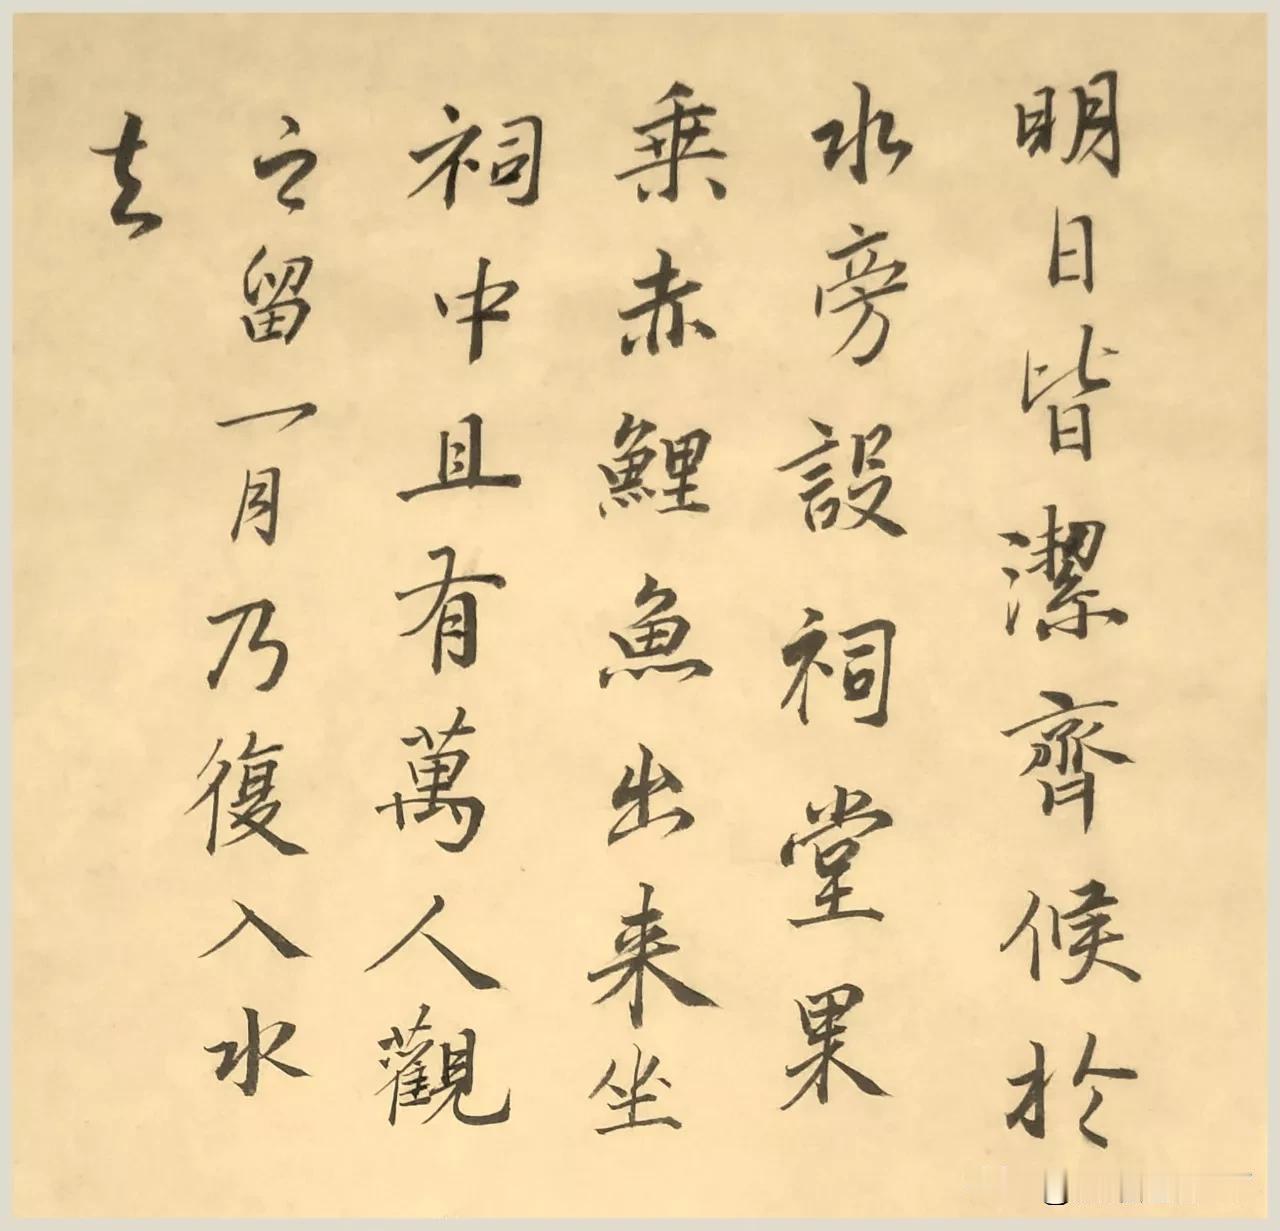 明日皆潔齊候於
水旁設祠堂果
乗赤鯉魚出来坐
祠中且有萬人觀
之留一月乃復入水
去